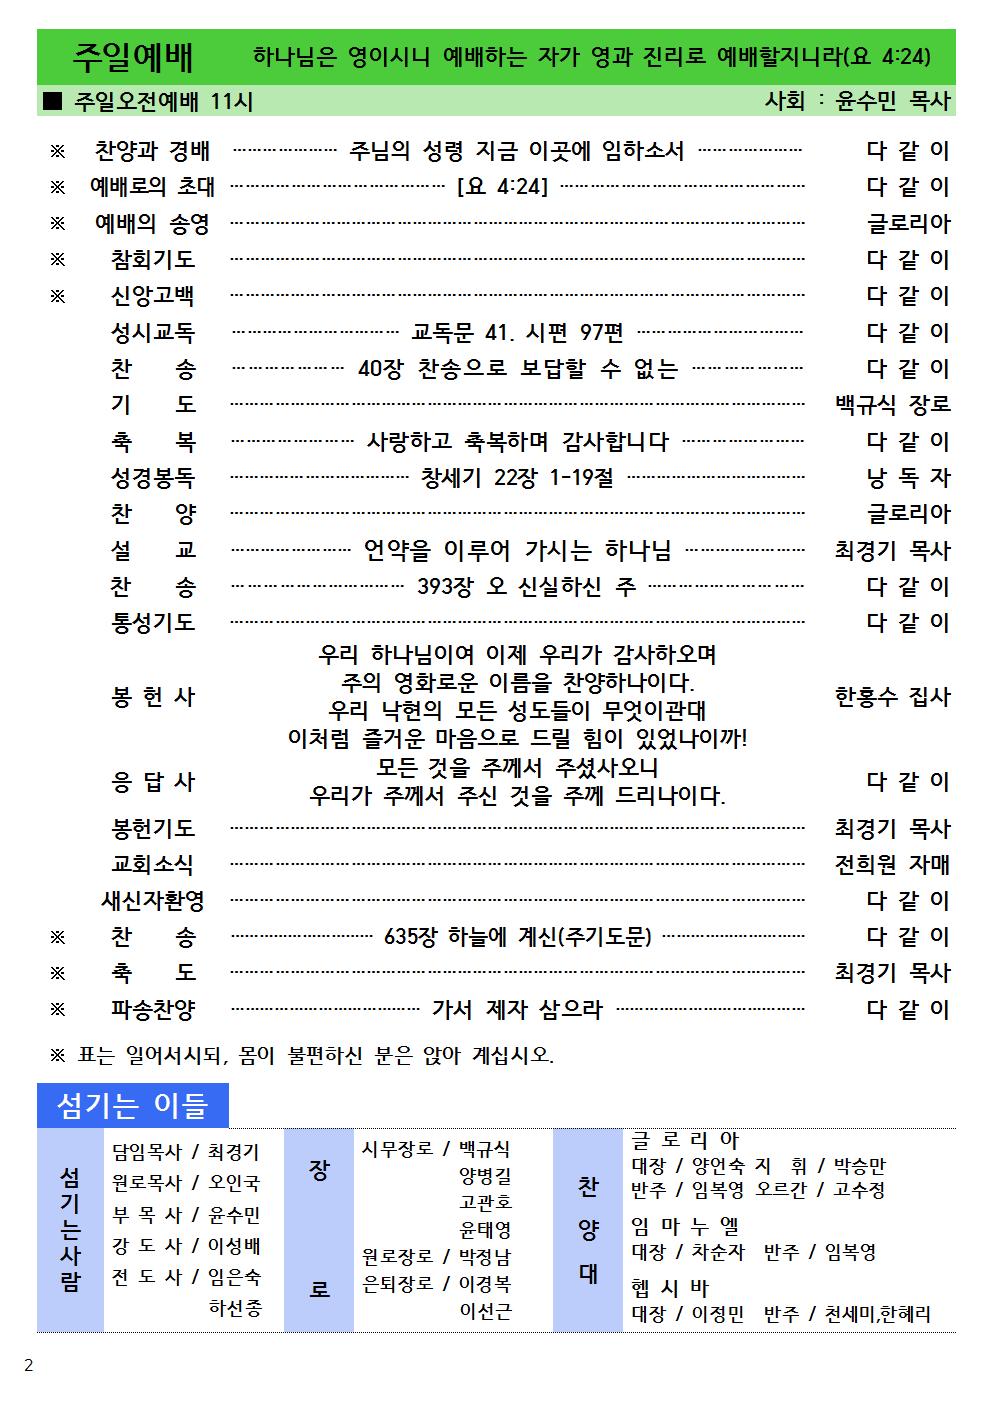 주일예배 하나님은 영이시니 예배하는 자가 영과 진리로 예배할지니라(요 4:24)
■ 주일오전예배 11시 사회 : 윤수민 목사
※ 찬양과 경배 ………………… 주님의 성령 지금 이곳에 임하소서 ………………… 다 같 이
※ 예배로의 초대 …………………………………… [요 4:24] ………………………………………… 다 같 이
※ 예배의 송영 ………………………………………………………………………………………………… 글로리아
※ 참회기도 ………………………………………………………………………………………………… 다 같 이
※ 신앙고백 ………………………………………………………………………………………………… 다 같 이
성시교독 …………………………… 교독문 41. 시편 97편 …………………………… 다 같 이
찬 송 ………………… 40장 찬송으로 보답할 수 없는 ………………… 다 같 이
기 도 ………………………………………………………………………………………………… 백규식 장로
축 복 …………………… 사랑하고 축복하며 감사합니다 …………………… 다 같 이
성경봉독 ……………………………… 창세기 22장 1-19절 ……………………………… 낭 독 자
찬 양 ………………………………………………………………………………………………… 글로리아
설 교 …………………… 언약을 이루어 가시는 하나님 …………………… 최경기 목사
찬 송 …………………………… 393장 오 신실하신 주 ………………………… 다 같 이
통성기도 ………………………………………………………………………………………………… 다 같 이
우리 하나님이여 이제 우리가 감사하오며
주의 영화로운 이름을 찬양하나이다.
봉 헌 사 한홍수 집사
우리 낙현의 모든 성도들이 무엇이관대
이처럼 즐거운 마음으로 드릴 힘이 있었나이까!
모든 것을 주께서 주셨사오니
응 답 사 다 같 이
우리가 주께서 주신 것을 주께 드리나이다.
봉헌기도 ………………………………………………………………………………………………… 최경기 목사
교회소식 ………………………………………………………………………………………………… 전희원 자매
새신자환영 ………………………………………………………………………………………………… 다 같 이
※ 찬 송 ………………………… 635장 하늘에 계신(주기도문) ………………………… 다 같 이
※ 축 도 ………………………………………………………………………………………………… 최경기 목사
※ 파송찬양 ………………………………… 가서 제자 삼으라 ………………………………… 다 같 이
※ 표는 일어서시되, 몸이 불편하신 분은 앉아 계십시오.
섬기는 이들
섬기는사람
담임목사 / 최경기
원로목사 / 오인국
부 목 사 / 윤수민
강 도 사 / 이성배
전 도 사 / 임은숙
하선종
장 로
시무장로 / 백규식
양병길
고관호
윤태영
원로장로 / 박정남
은퇴장로 / 이경복
이선근
찬 양 대
글 로 리 아
대장 / 양언숙 지 휘 / 박승만
반주 / 임복영 오르간 / 고수정
임 마 누 엘
대장 / 차순자 반주 / 임복영
헵 시 바
대장 / 이정민 반주 / 천세미,한혜리
2